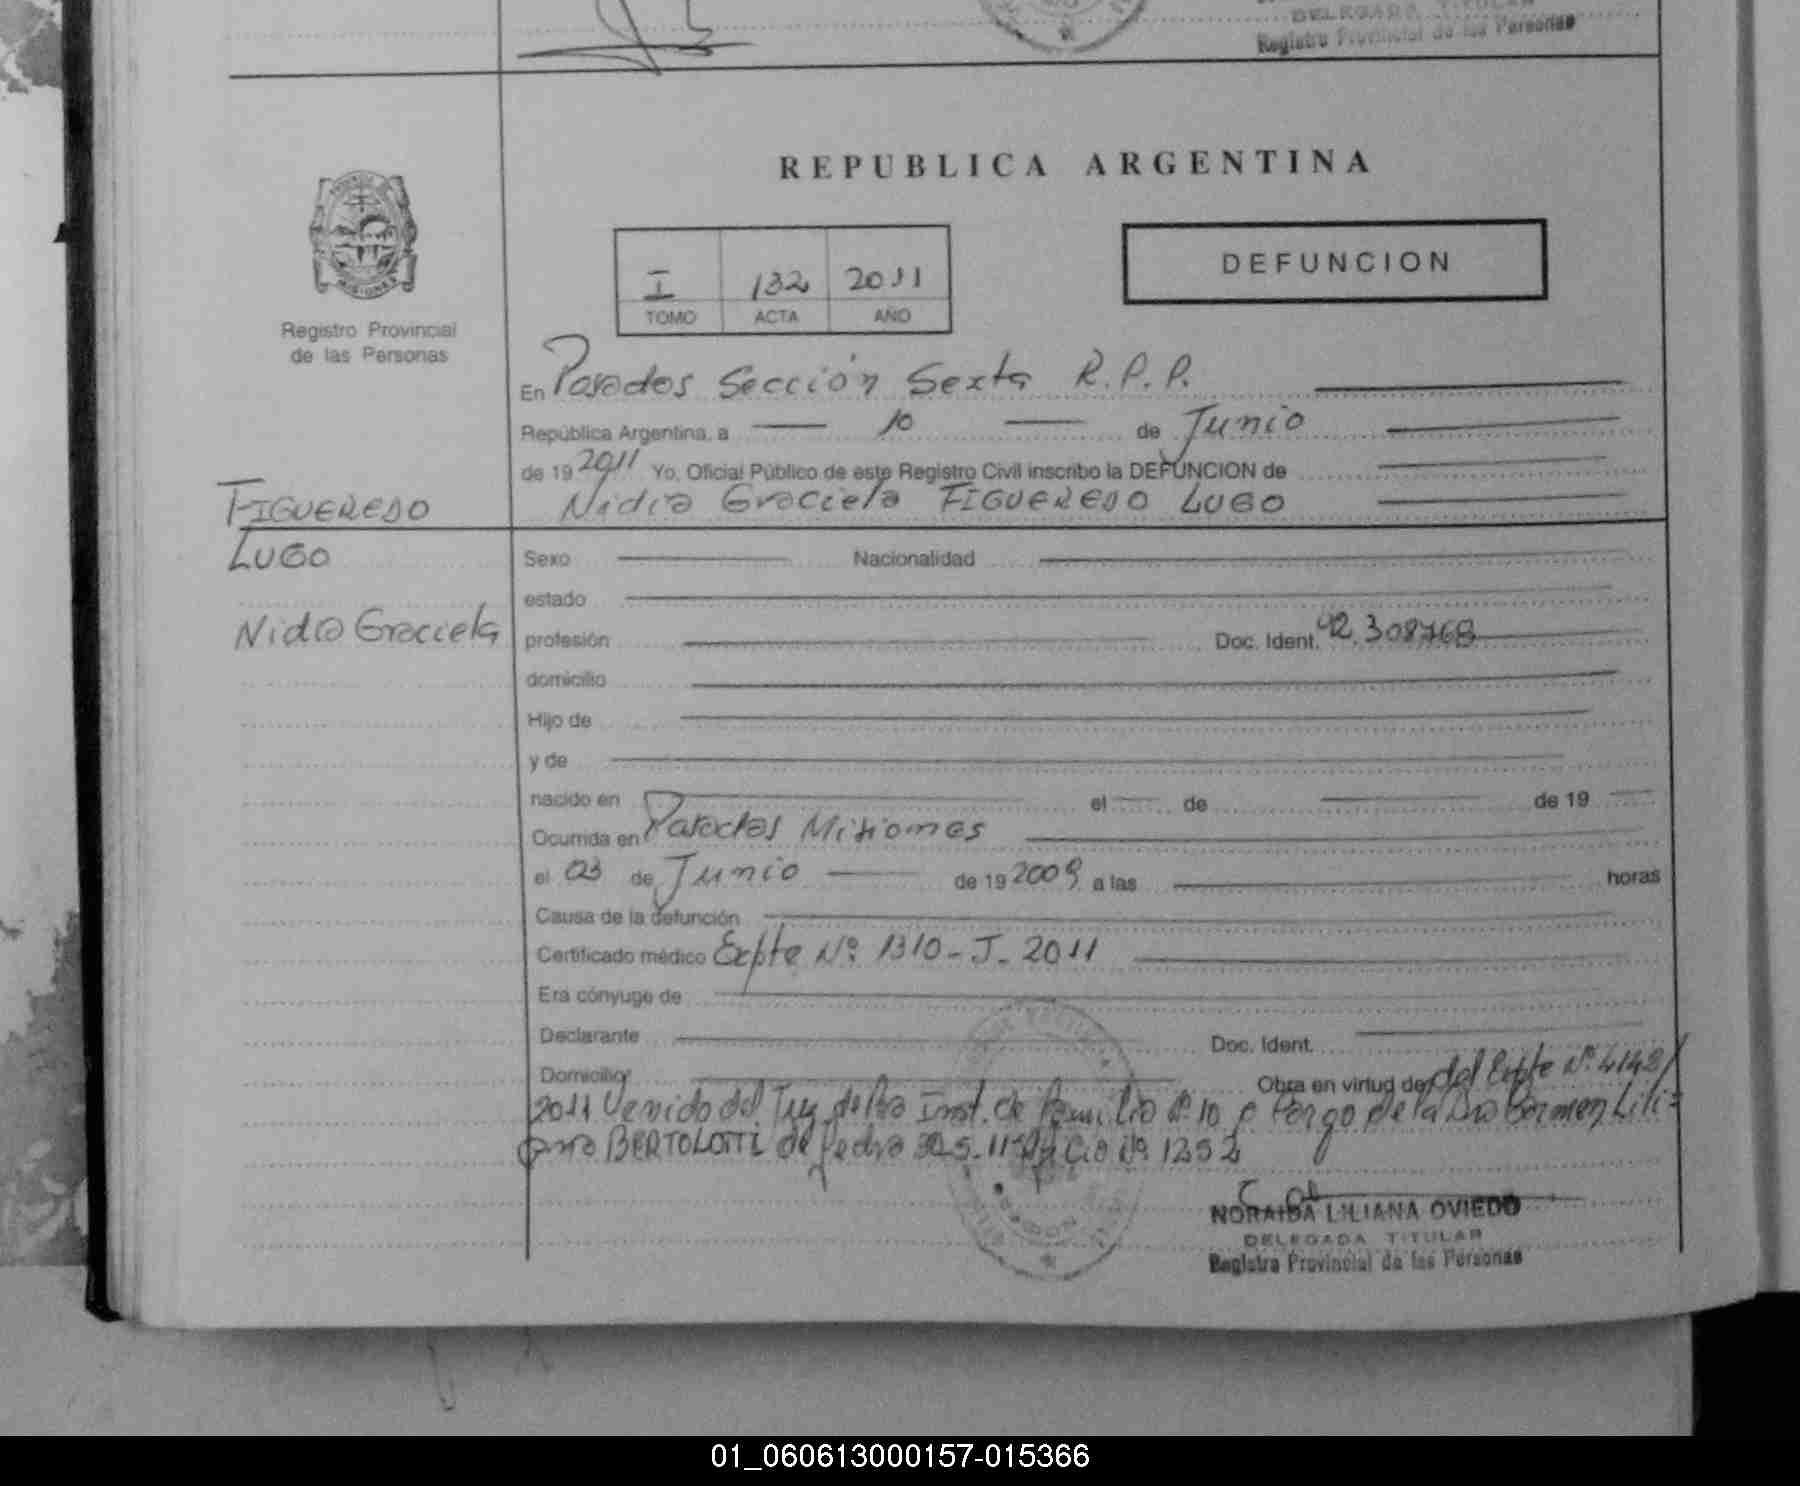 DELEGADA TITULAR
Registro Provincial de las Personas
REPUBLICA ARGENTINA
MISIONES
Registro Provincial
de las Personas
I 132 2011
TOMO ACTA AÑO
DEFUNCION
En Posadas Sección Sexta R.P.P.
República Argentina, a 10 de Junio
de 19 2011 Yo, Oficial Público de este Registro Civil inscribo la DEFUNCION de
Nidia Graciela FIGUEREDO LUGO
FIGUEREDO
LUGO
Nidia Graciela
Sexo Nacionalidad
estado
profesión Doc. Ident. 92.308768
domicilio
Hijo de
y de
nacido en el de de 19
Ocurrida en Posadas Misiones
el 03 de Junio de 19 2009 a las horas
Causa de la defunción
Certificado médico Expte Nº 1310-J-2011
Era cónyuge de
Declarante Doc. Ident.
Domicilio Obra en virtud de del Expte Nº 4148/
2011 Venido del Juz de 1ra Inst. de Familia Nº 10 a Cargo de la Dra Carmen Lili=
ana BERTOLOTTI de fecha Nº 1252
NORAIDA LILIANA OVIEDO
DELEGADA TITULAR
Registro Provincial de las Personas
01_060613000157-015366